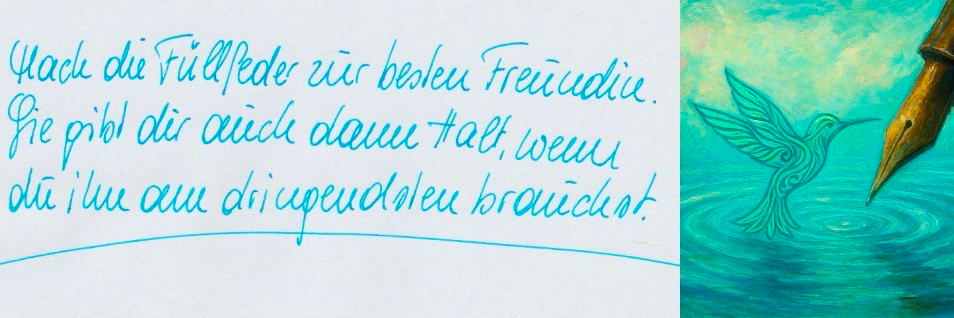 Mach die Füllfeder zur besten Freundin.
Sie gibt dir auch dann Halt, wenn
du ihn am dringendsten brauchst.